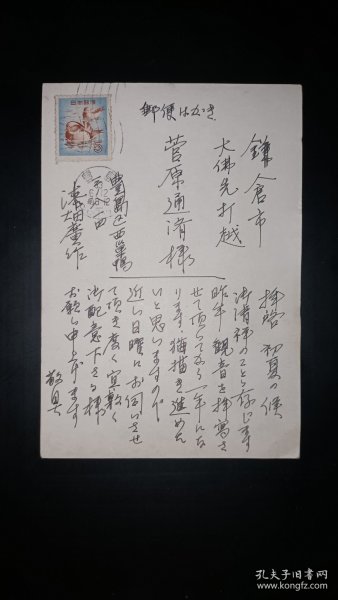 郵便はがき
鎌倉市
大佛先打越
菅原通済様
豊島區西巣鴨
廣作
拝啓 初夏の候
御清祥のことゝ存じます
昨年観音を拝寫さ
せて頂いてから一年にな
ります 猶描き進めた
いと思いますので
近い日曜にお伺いさせ
て頂き度く宜敷く
御配意下さる様
お願い申上ます
敬具
孔夫子旧书网
www.kongfz.com